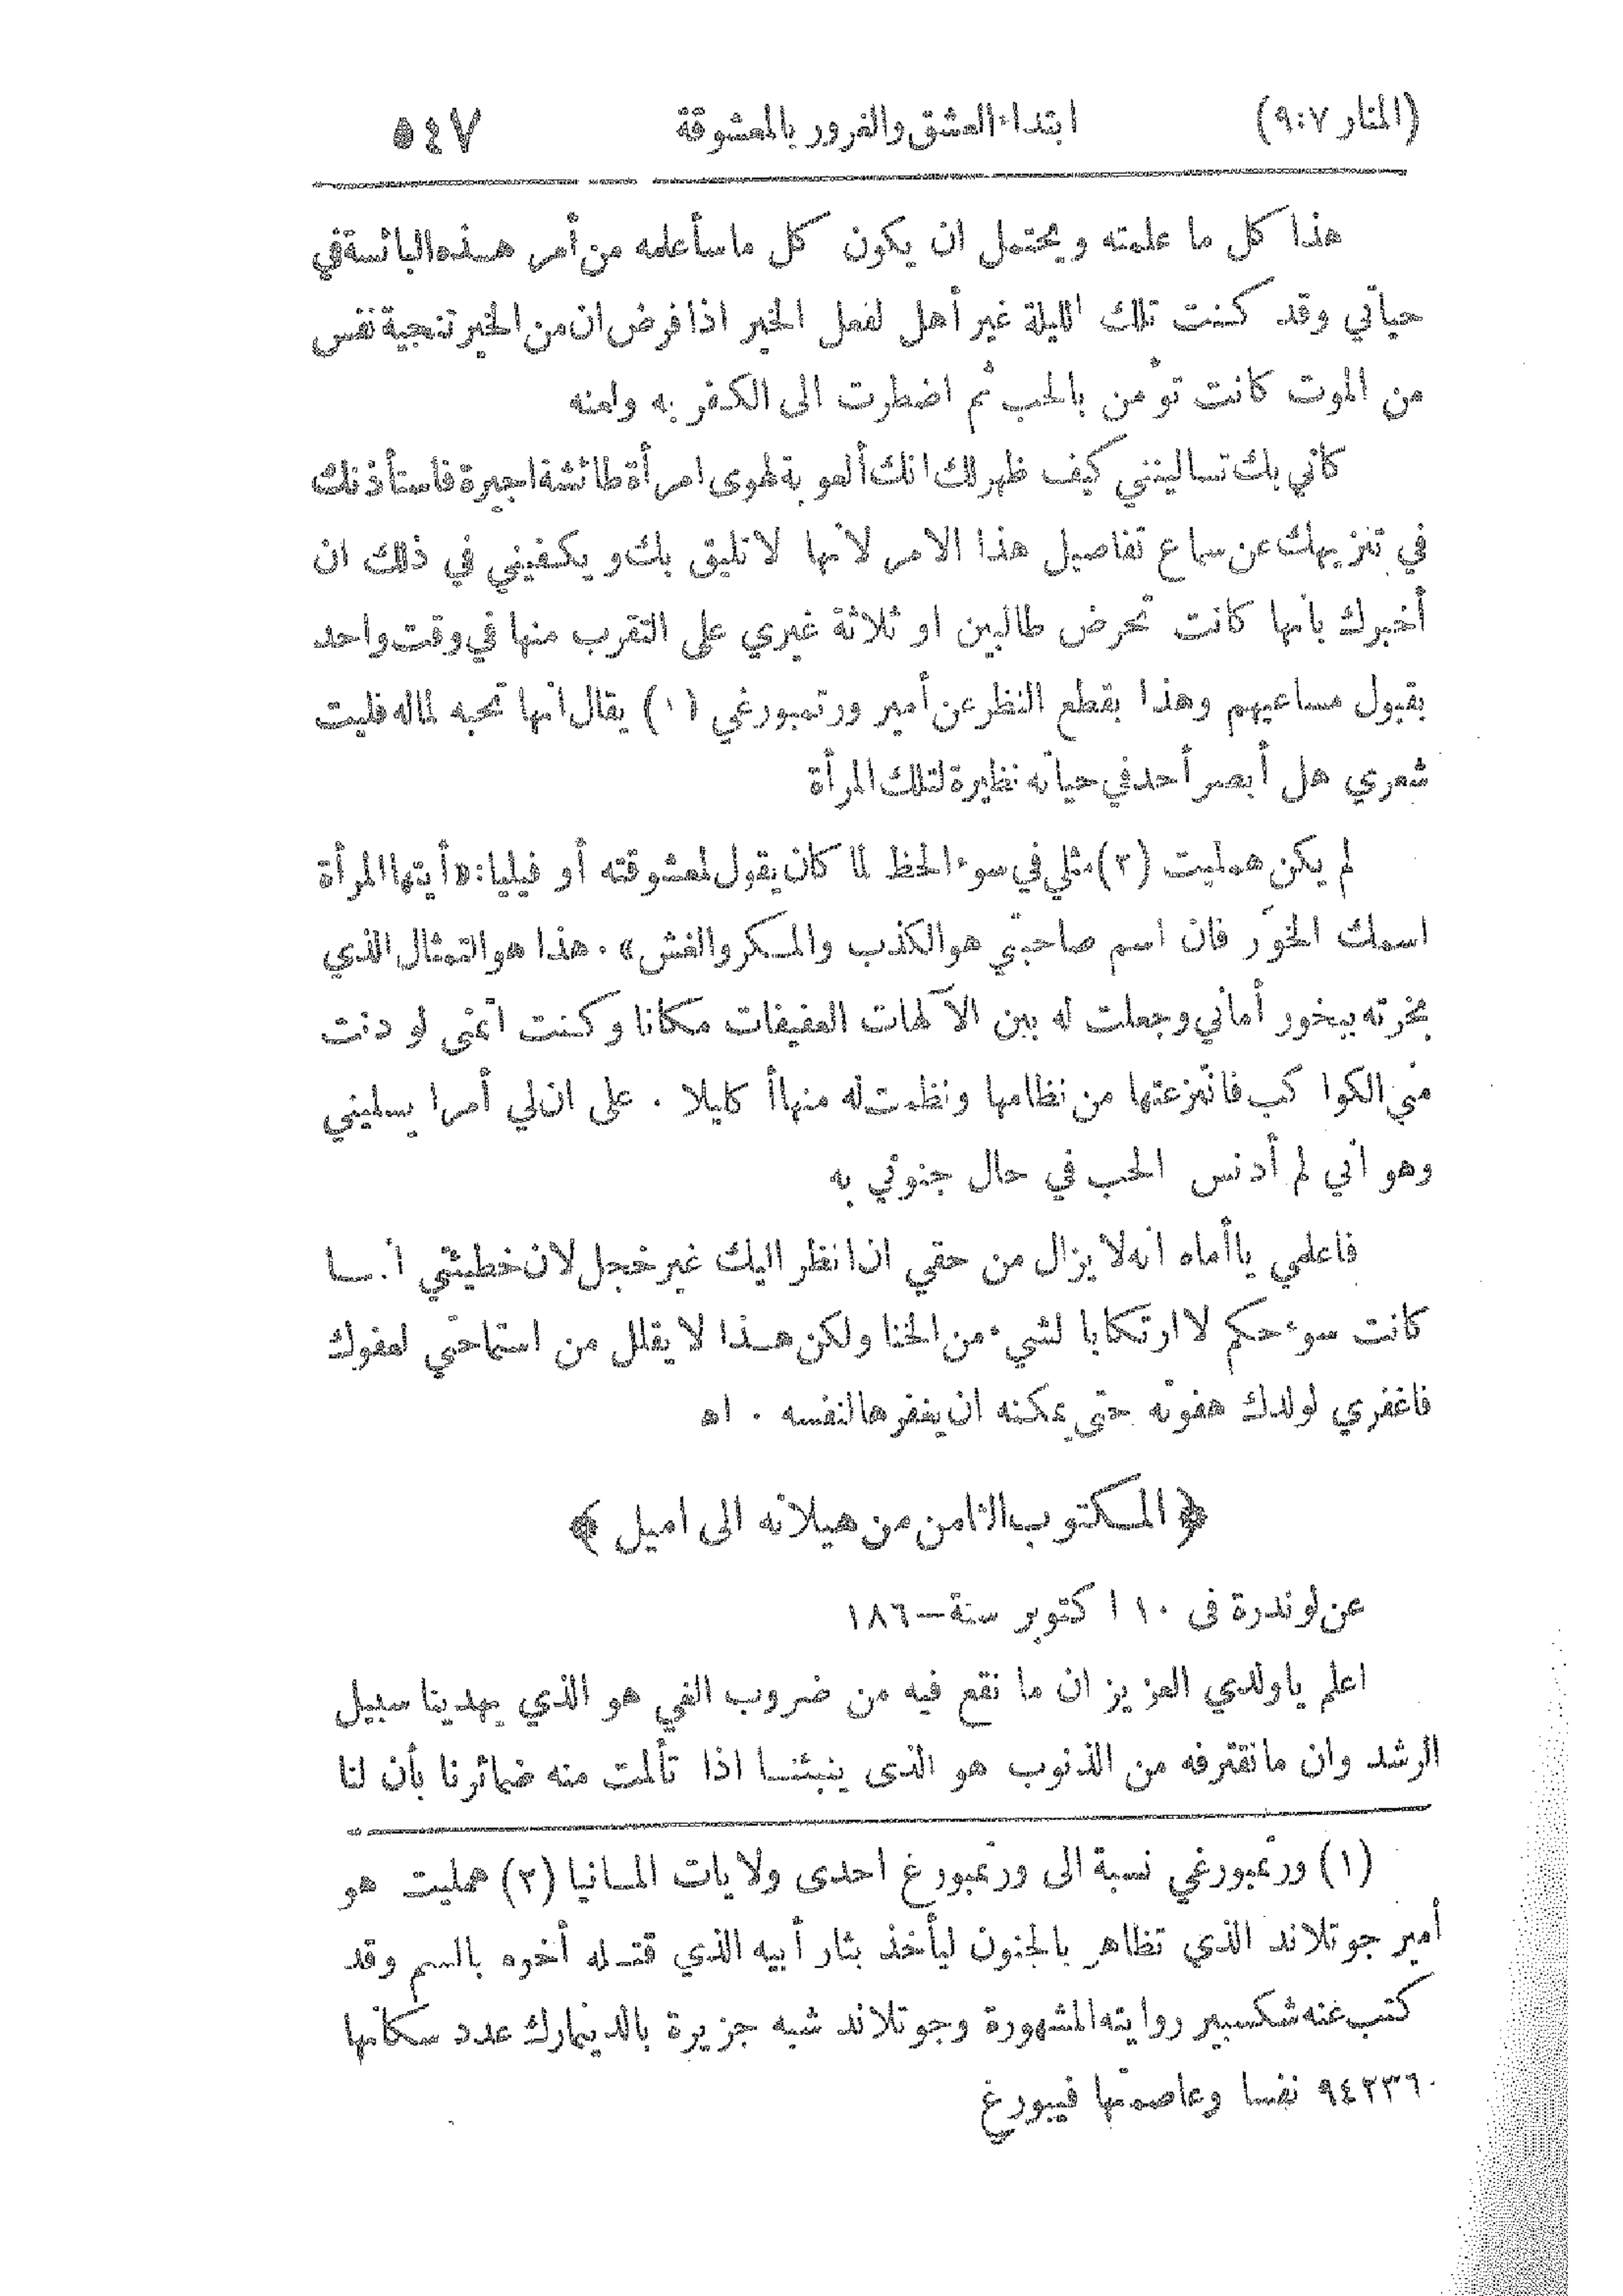 (المنار ٩:٧) ابتداء العشق والغرور بالمعشوقة ٥٤٧
هذا كل ما علمته ويحتمل ان يكون كل ما سأعلمه من أمر هذه البائسة في
حياتي وقد كنت تلك الليلة غير أهل لفعل الخير اذا فرض ان من الخير تنجية نفس
من الموت كانت تؤمن بالحب ثم اضطرت الى الكفر به ولعنه
كأني بك تسأليني كيف ظهر لك انك ألعوبة لهوى امرأة طائشة اجيرة فاستأذنك
في تنزيهك عن سماع تفاصيل هذا الامر لانها لا تليق بك ويكفيني في ذلك ان
أخبرك بانها كانت تحرض طالبين او ثلاثة غيري على التقرب منها في وقت واحد
بقبول مساعيهم وهذا بقطع النظر عن أمير ورتمبورغي (١) يقال انها تحبه لماله فليت
شعري هل أبصر أحد في حياته نظيرة لتلك المرأة
لم يكن هملیت (٢) مثلي في سوء الحظ لما كان يقول لمعشوقته أوفيليا: «أيتها المرأة
اسمك الخوَر فان اسم صاحبتي هو الكذب والمكر والغش». هذا هو التمثال الذي
بخرته ببخور أماني وجعلت له بين الآلهات العفيفات مكانا وكنت اتمنى لو دنت
مني الكواكب فانتزعتها من نظامها ونظمت له منها أكاليلا. على ان لي أمرا يسليني
وهو اني لم أدنس الحب في حال جنوني به
فاعلمي يا أماه انه لا يزال من حقي ان انظر اليك غير خجل لان خطيئتي انما
كانت سوء حكم لا ارتكابا لشيء من الخنا ولكن هذا لا يقلل من استماحتي لعفوك
فاغفري لولدك هفوته حتى يمكنه ان يغفرها لنفسه . اه
﴿ المكتوب الثامن من هيلانه الى اميل ﴾
عن لوندرة فى ١٠ اكتوبر سنة – ١٨٦
اعلم يا ولدي العزيز ان ما نقع فيه من ضروب الغي هو الذي يهدينا سبيل
الرشد وان ما نقترفه من الذنوب هو الذى ينبئنا اذا تألمت منه ضمائرنا بأن لنا
(١) ورتمبورغي نسبة الى ورتمبورغ احدى ولايات المانيا (٢) هملیت هو
أمير جوتلاند الذي تظاهر بالجنون ليأخذ بثار أبيه الذي قتله أخوه بالسم وقد
كتب عنه شكسبير روايته المشهورة وجوتلاند شبه جزيرة بالدينمارك عدد سكانها
٩٤٢٣٦٠ نفسا وعاصمتها فيبورغ